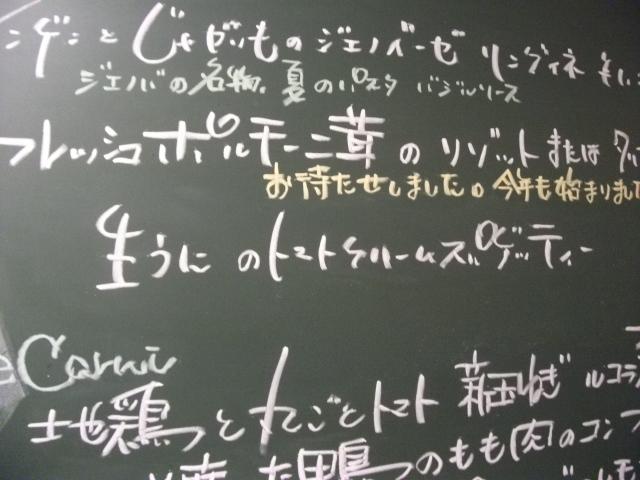 ンゲンとじゃがいものジェノベーゼ リングイネ
ジェノバの名物。夏のパスタ バジルソース
フレッシュポルチーニ茸のリゾットまたは
お待たせしました。今年も始まりました
生うにのトマトクリームスパゲッティー
Carni
土也鶏と丸ごとトマト 新玉ねぎ ルコラ
鴨のもも肉のコンフ